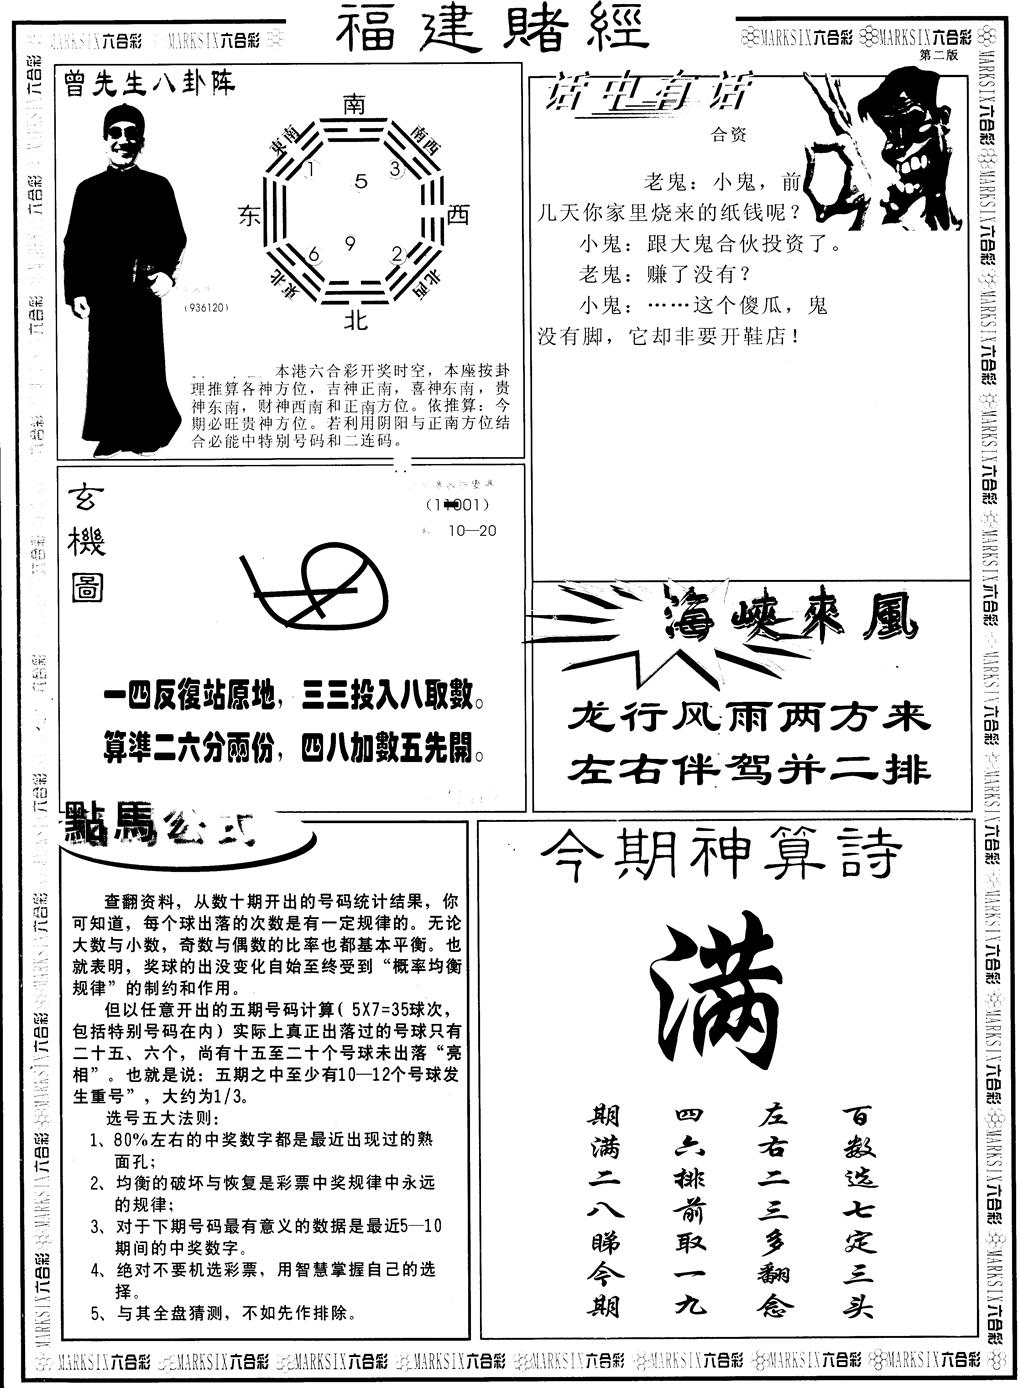 福建賭經
MARKSIX六合彩 MARKSIX六合彩
MARKSIX六合彩 MARKSIX六合彩
第二版
曾先生八卦阵
南
東南 南西
1 5 3
东 西
6 9 2
東北 北西
北
(936120)
本港六合彩开奖时空，本座按卦
理推算各神方位，吉神正南，喜神东南，贵
神东南，财神西南和正南方位。依推算：今
期必旺贵神方位。若利用阴阳与正南方位结
合必能中特别号码和二连码。
话中有话
合资
老鬼：小鬼，前
几天你家里烧来的纸钱呢？
小鬼：跟大鬼合伙投资了。
老鬼：赚了没有？
小鬼：……这个傻瓜，鬼
没有脚，它却非要开鞋店！
玄機圖
10—20
一四反復站原地，三三投入八取數。
算準二六分兩份，四八加數五先開。
海峽來風
龙行风雨两方来
左右伴驾并二排
點馬公式
查翻资料，从数十期开出的号码统计结果，你
可知道，每个球出落的次数是有一定规律的。无论
大数与小数，奇数与偶数的比率也都基本平衡。也
就表明，奖球的出没变化自始至终受到“概率均衡
规律”的制约和作用。
但以任意开出的五期号码计算( 5X7=35球次，
包括特别号码在内）实际上真正出落过的号球只有
二十五、六个，尚有十五至二十个号球未出落“亮
相”。也就是说：五期之中至少有10—12个号球发
生重号”，大约为1/3。
选号五大法则：
1、80%左右的中奖数字都是最近出现过的熟
面孔；
2、均衡的破坏与恢复是彩票中奖规律中永远
的规律；
3、对于下期号码最有意义的数据是最近5—10
期间的中奖数字。
4、绝对不要机选彩票，用智慧掌握自己的选
择。
5、与其全盘猜测，不如先作排除。
今期神算詩
满
百数选七定三头
左右二三多翻念
四六排前取一九
期满二八睇今期
MARKSIX六合彩 MARKSIX六合彩 MARKSIX六合彩 MARKSIX六合彩 MARKSIX六合彩 MARKSIX六合彩 MARKSIX六合彩 MARKSIX六合彩